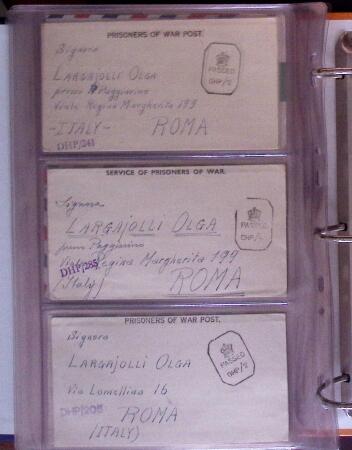 PRISONERS OF WAR POST.
Signora
LARGAJOLLI OLGA
presso Paggiarino
Viale Regina Margherita 199
-ITALY- ROMA
PASSED
DHP/
DHP/241
SERVICE OF PRISONERS OF WAR.
Signora
LARGAJOLLI OLGA
Viale Regina Margherita 199
(Italy) ROMA
PASSED
DHP/
DHP/285
PRISONERS OF WAR POST.
Signora
LARGAJOLLI OLGA
Via Lomellina 16
ROMA
(ITALY)
PASSED
DHP/
DHP/205